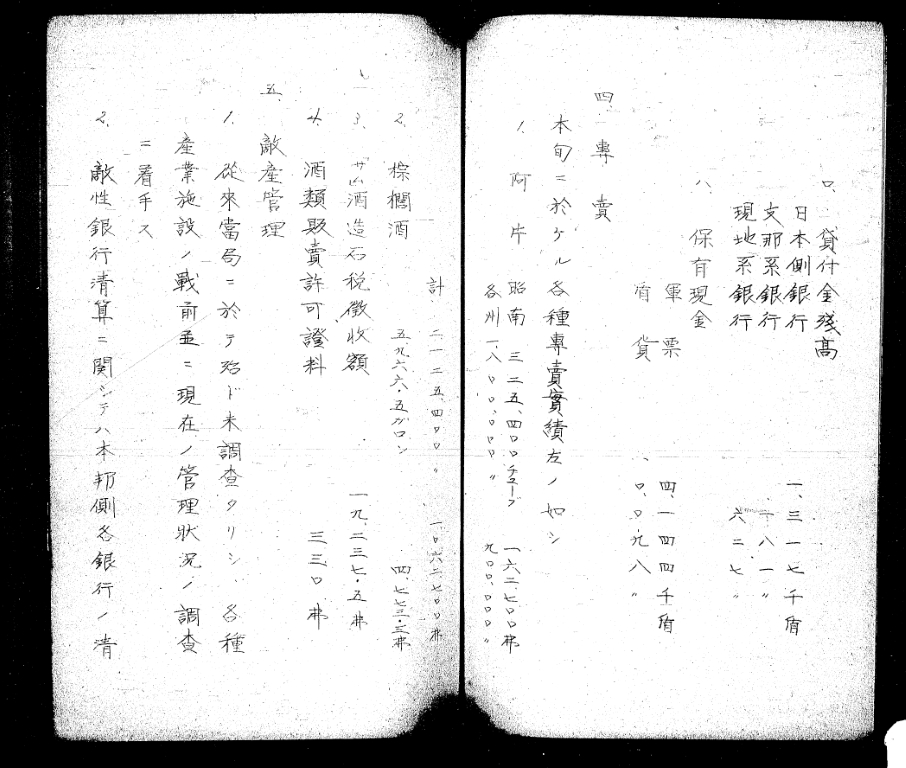 ロ、貸付金残高
日本側銀行 一、三一七千盾
支那系銀行 一八一〃
現地系銀行 六二七〃
ハ、保有現金
軍票 四、一四四千盾
有貨 〇、〇九八〃
四、専賣
本旬ニ於ケル各種専賣實績左ノ如シ
1、阿片
昭南 三二五、四〇〇チューブ 一六二、七〇〇弗
各州 一、八〇〇、〇〇〇〃 九〇〇、〇〇〇〃
計 二、一二五、四〇〇〃 一、〇六二、七〇〇弗
2、棕櫚酒 五九六六・五ガロン 四、七七三・三弗
3、サムス酒造石税徴收額 一九、二三七・五弗
4、酒類販賣許可證料 三三〇弗
五、敵産管理
1、從來當局ニ於テ殆ド未調査タリシ、各種
産業施設ノ戰前並ニ現在ノ管理状況ノ調査
ニ着手ス
2、敵性銀行清算ニ関シテハ本邦側各銀行ノ清